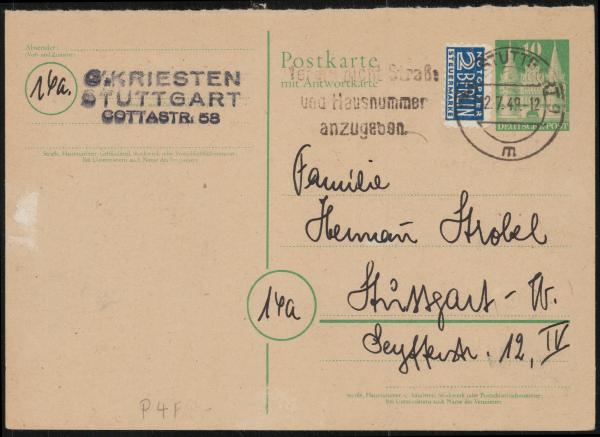 Absender:
(Vor- und Zuname)
14a.
G. KRIESTEN
STUTTGART
COTTASTR: 58
Straße, Hausnummer (Gebäudeteil), Stockwerk oder Postschließfachnummer,
bei Untermietern auch Name des Vermieters
Postkarte
mit Antwortkarte
nicht Straße
und Hausnummer
anzugeben.
NOTOPFER
2 BERLIN
STEUERMARKE
STUTTGART
2.7.49.-12
m
10
DEUTSCHE POST
Familie
Hermann Strobel
Stuttgart - W.
14a
Seyfferstr. 12, IV
Straße, Hausnummer (Gebäudeteil), Stockwerk oder Postschließfachnummer;
bei Untermietern auch Name des Vermieters
P 4 F